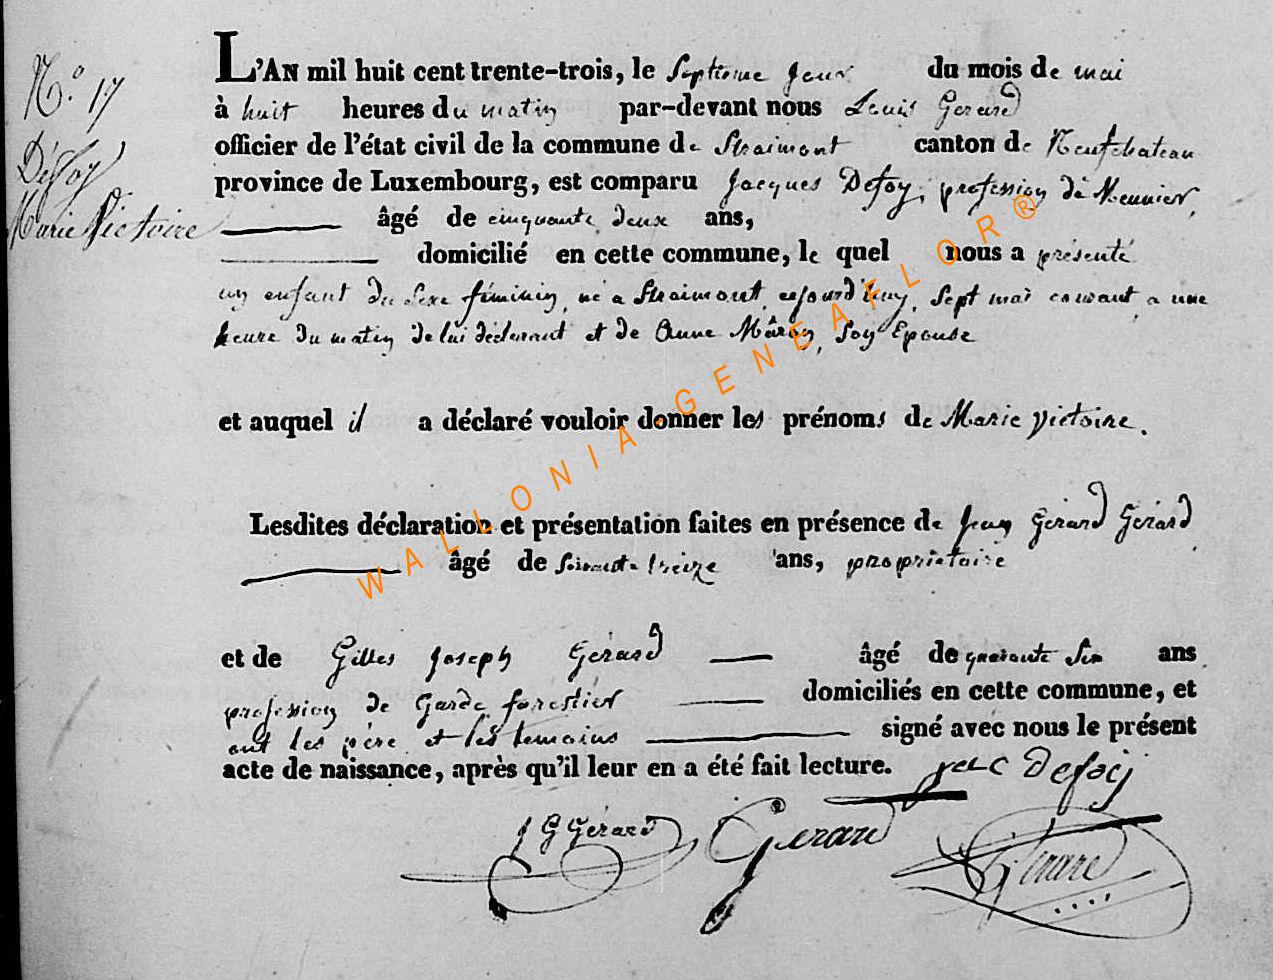 N.° 17
Défoy
Marie Victoire
L'AN mil huit cent trente-trois, le Septieme jour du mois de mai
à huit heures du matin par-devant nous Louis Gerard
officier de l'état civil de la commune de Straimont canton de Neufchateau
province de Luxembourg, est comparu Jacques Defoy, profession de Meunier,
âgé de cinquante deux ans,
domicilié en cette commune, le quel nous a présenté
un enfant du Sexe féminin, né a Straimont, aujourd'huy, Sept mai courant, a une
heure du matin de lui déclarant et de Anne Mâron, Son Epouse
et auquel il a déclaré vouloir donner les prénoms de Marie Victoire.
Lesdites déclaration et présentation faites en présence de Jean Gérard Gérard
âgé de soixante treize ans, propriétaire
et de Gilles Joseph Gérard âgé de quarante Six ans
profession de Garde forestier domiciliés en cette commune, et
ont les père et les temoins signé avec nous le présent
acte de naissance, après qu'il leur en a été fait lecture. Jac Defoij
J G Gérard Gerard Gerard
WALLONIA-GENEAFLOR®